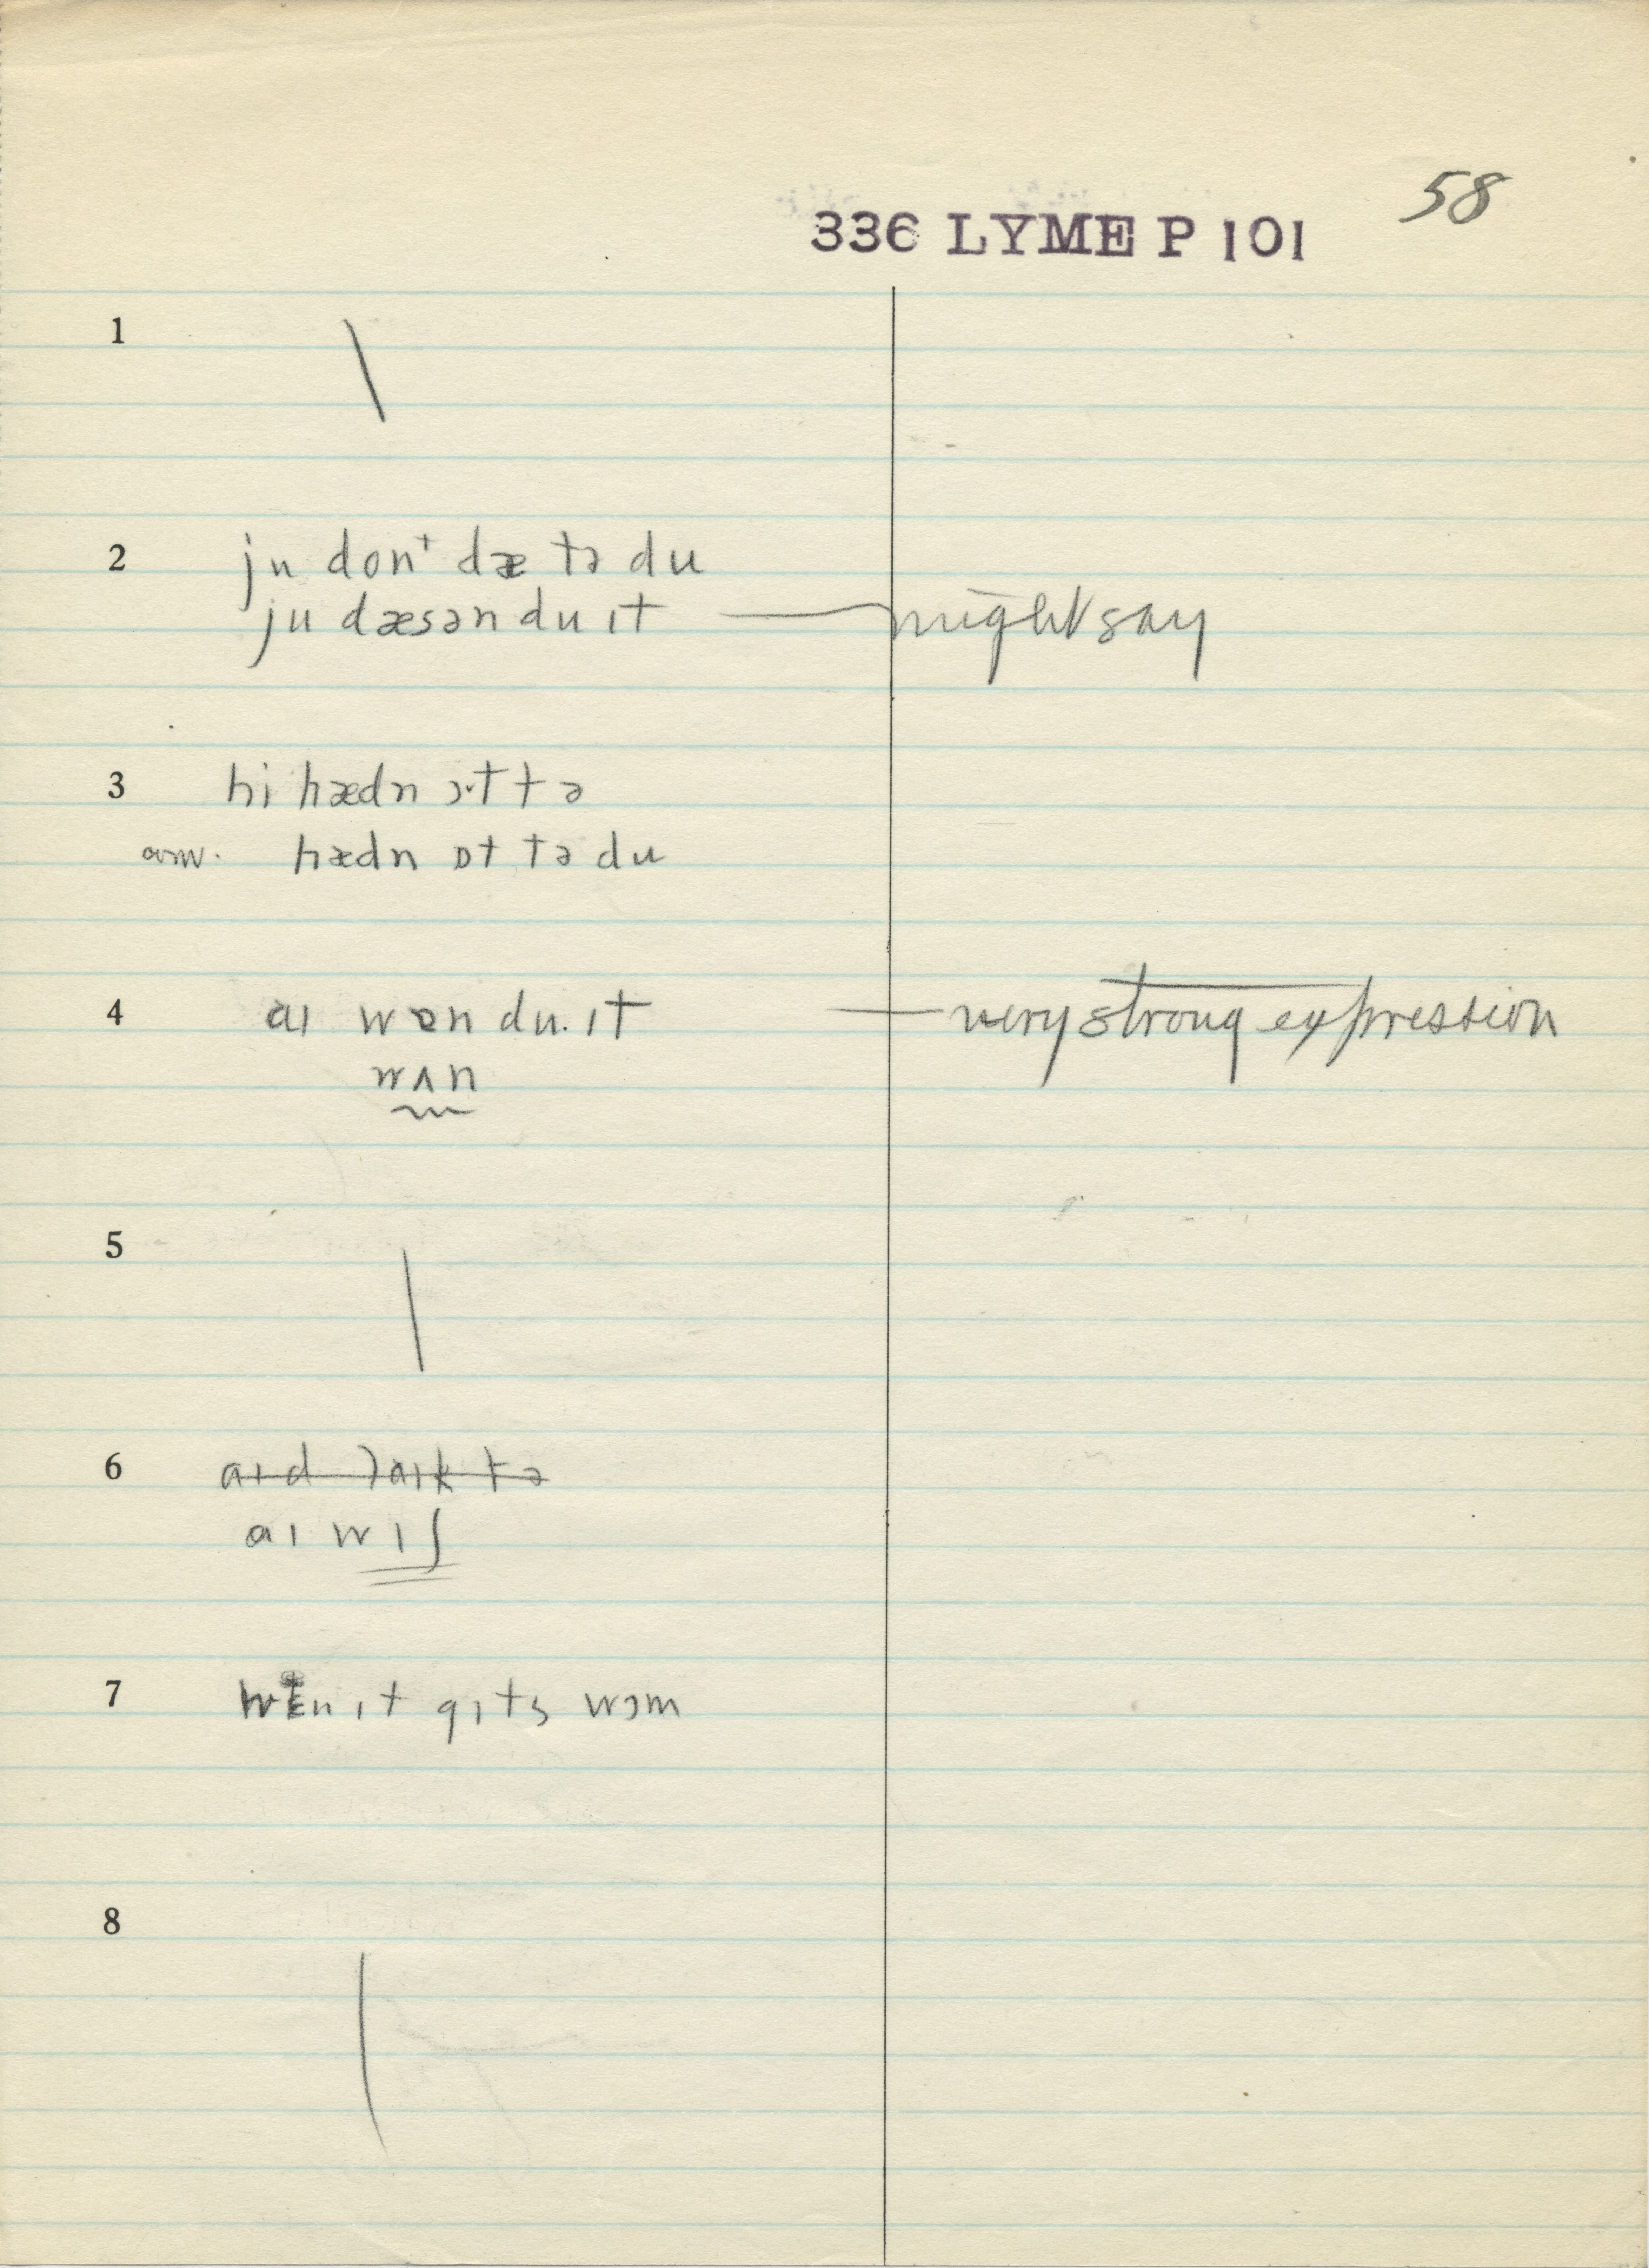 58
336 LYME P 101
1
2 ju donᵗ dæ tə du
ju dæsən du ɪt — might say
3 hi hædn ɔ·t tə
aw. hædn ɒt tə du
4 aɪ won du. ɪt — very strong expression
wʌn
5
6 aɪd laɪk tə
aɪ wɪʃ
7 wɛn ɪt gɪts wɔm
8